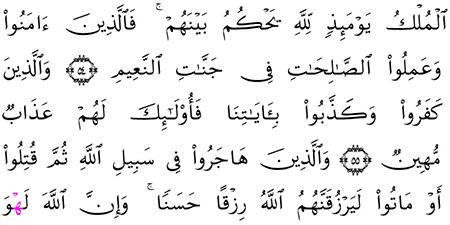 ٱلْمُلْكُ يَوْمَئِذٍ لِّلَّهِ يَحْكُمُ بَيْنَهُمْ ۚ فَٱلَّذِينَ ءَامَنُوا۟
وَعَمِلُوا۟ ٱلصَّـٰلِحَـٰتِ فِى جَنَّـٰتِ ٱلنَّعِيمِ ۝٥٤ وَٱلَّذِينَ
كَفَرُوا۟ وَكَذَّبُوا۟ بِـَٔايَـٰتِنَا فَأُو۟لَـٰٓئِكَ لَهُمْ عَذَابٌ
مُّهِينٌ ۝٥٥ وَٱلَّذِينَ هَاجَرُوا۟ فِى سَبِيلِ ٱللَّهِ ثُمَّ قُتِلُوٓا۟
أَوْ مَاتُوا۟ لَيَرْزُقَنَّهُمُ ٱللَّهُ رِزْقًا حَسَنًا ۚ وَإِنَّ ٱللَّهَ لَهُوَ